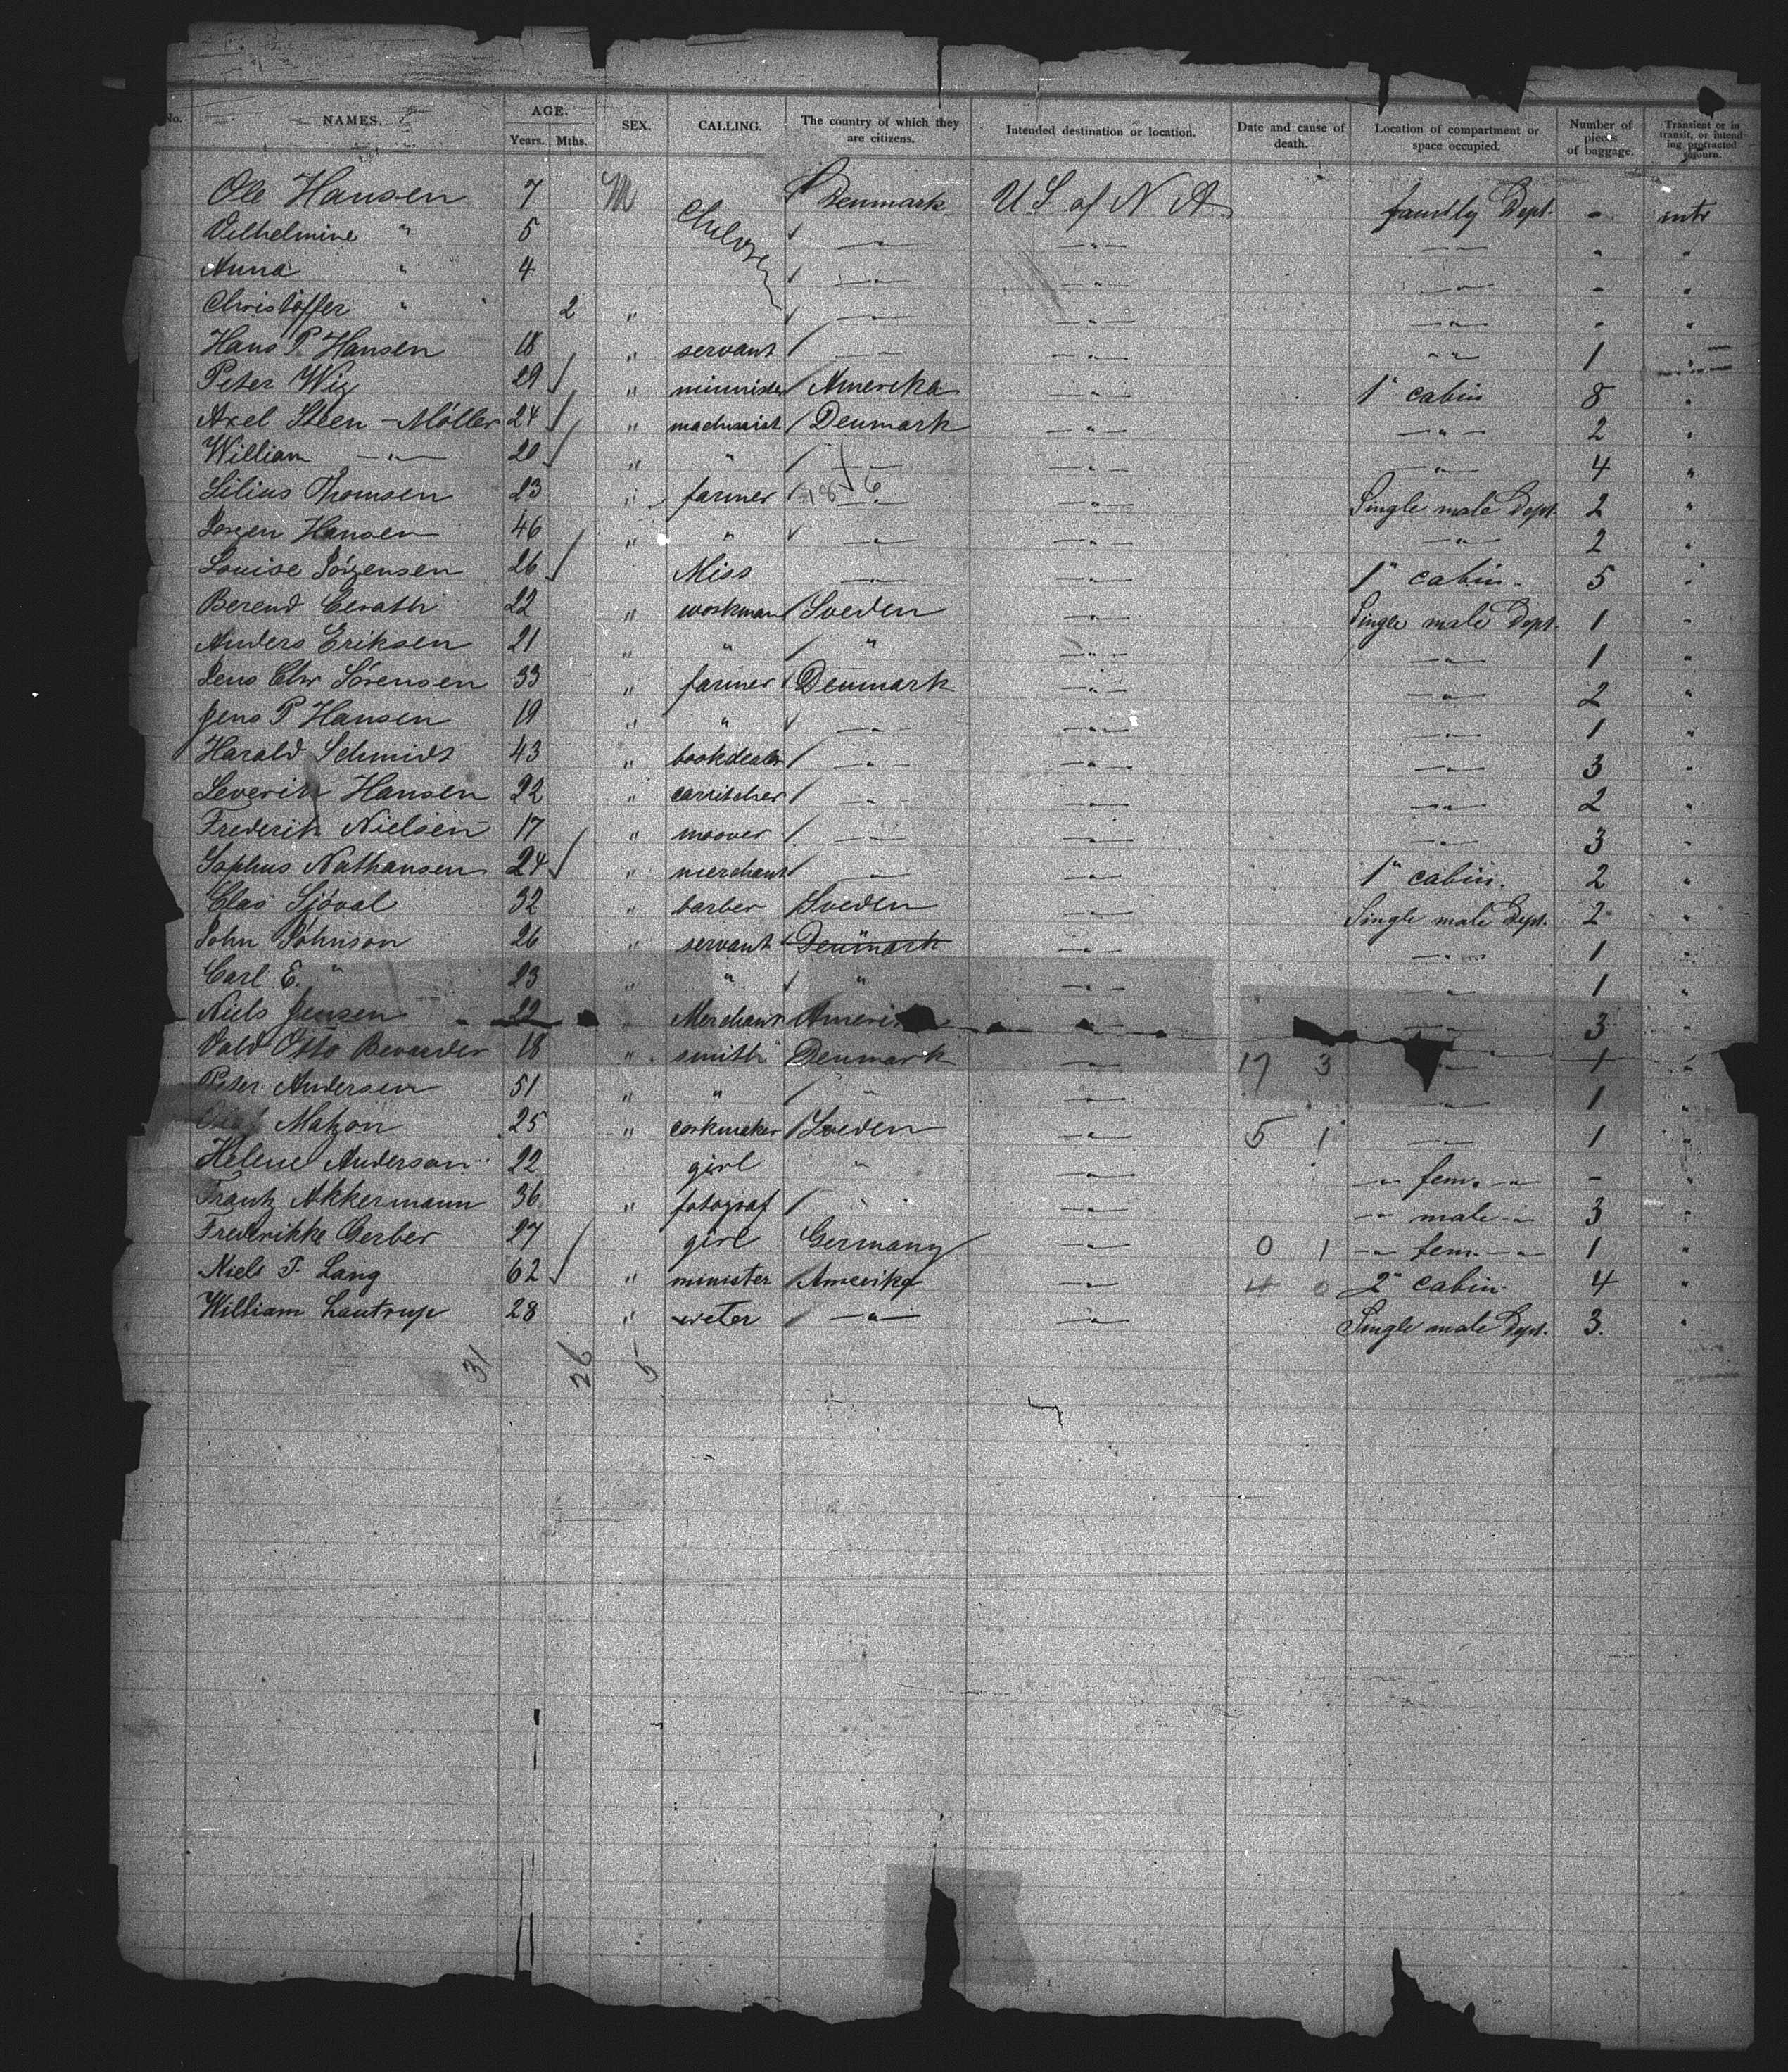 No. NAMES. AGE. Years. Mths. SEX. CALLING. The country of which they are citizens. Intended destination or location. Date and cause of death. Location of compartment or space occupied. Number of pieces of baggage. Transient or in transit, or intending protracted sojourn.
Ole Hansen 7 M Denmark U S of N A family Dept. -
Vilhelmine " 5 —"— —"— —"— " "
Anna " 4 —"— —"— —"— " "
Christoffer " 2 " —"— —"— —"— " "
Hans P. Hansen 18 " servant —"— —"— —"— 1 "
Peter Wig 29 " Amerika —"— 1" cabin 8 "
Axel Steen - Möller 24 " machinist Denmark —"— —"— 2 "
William —"— 20 " " —"— —"— —"— 4 "
Silius Thomsen 23 " farmer —"— —"— Single male Dept. 2 "
Jorgen Hansen 46 " " —"— —"— —"— 2 "
Louise Jörgensen 26 Miss —"— —"— 1" cabin. 5 "
Berend 22 " workman Sveden —"— Single male Dept. 1 "
Anders Eriksen 21 " " " —"— —"— 1 "
Jens Chr Sörensen 33 " farmer Denmark —"— —"— 2 "
Jens P Hansen 19 " " —"— —"— —"— 1 "
Harald Schmidt 43 " bookdealer —"— —"— —"— 3 "
Severin Hansen 22 " —"— —"— —"— 2 "
Frederik Nielsen 17 " —"— —"— —"— 3 "
Sophus Nathansen 24 " merchant —"— —"— 1" cabin. 2 "
Clas Sjöval 32 " barber Sveden —"— Single male Dept. 2 "
John Johnson 26 " servant Denmark —"— —"— 1 "
Carl E. " 23 " " " —"— —"— 1 "
Niels Jensen 22 " Merchant —"— —"— 3 "
Vald Otto 18 " smith Denmark —"— 17 3 —"— 1 "
Peter Andersen 51 " " " —"— —"— 1 "
Matzon 25 " corkmaker Sveden —"— 5 1 —"— 1 "
Helene Anderson 22 girl " —"— —"— fem. —"— - "
Frantz Akkermann 36 " fotograf " —"— —"— male —"— 3 "
Frederikke Gerber 27 girl Germany —"— 0 1 —"— fem. —"— 1 "
Niels T. Lang 62 " minister Amerika —"— 4 0 2" cabin 4 "
William Lautrup 28 " —"— —"— Single male Dept. 3. "
31 26 5